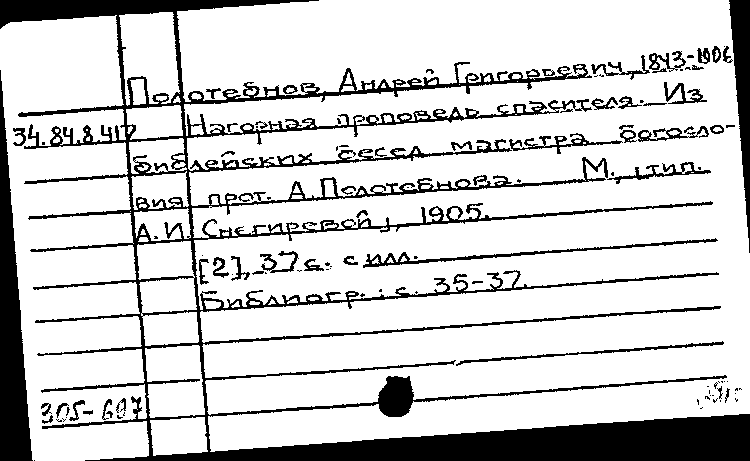 Полотебнов, Андрей Григорьевич, 1843-1906
34.84.8.417 Нагорная проповедь спасителя. Из
библейских бесед магистра богосло-
вия прот. А. Полотебнова. М., тип.
А. И. Снегиревой, 1905.
[2], 37 с. с илл.
Библиогр.: с. 35-37.
305-697